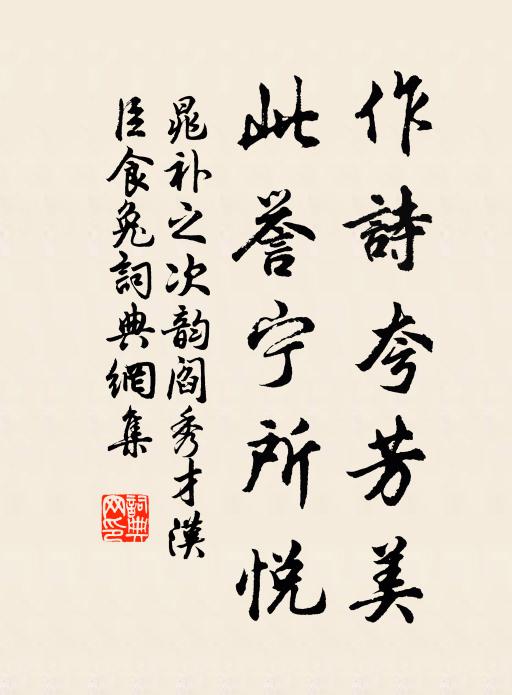 作詩夸芳美
此誉宁所悦
晁补之次韵阎秀才漢
臣食兔詞典網集
詞典
网印